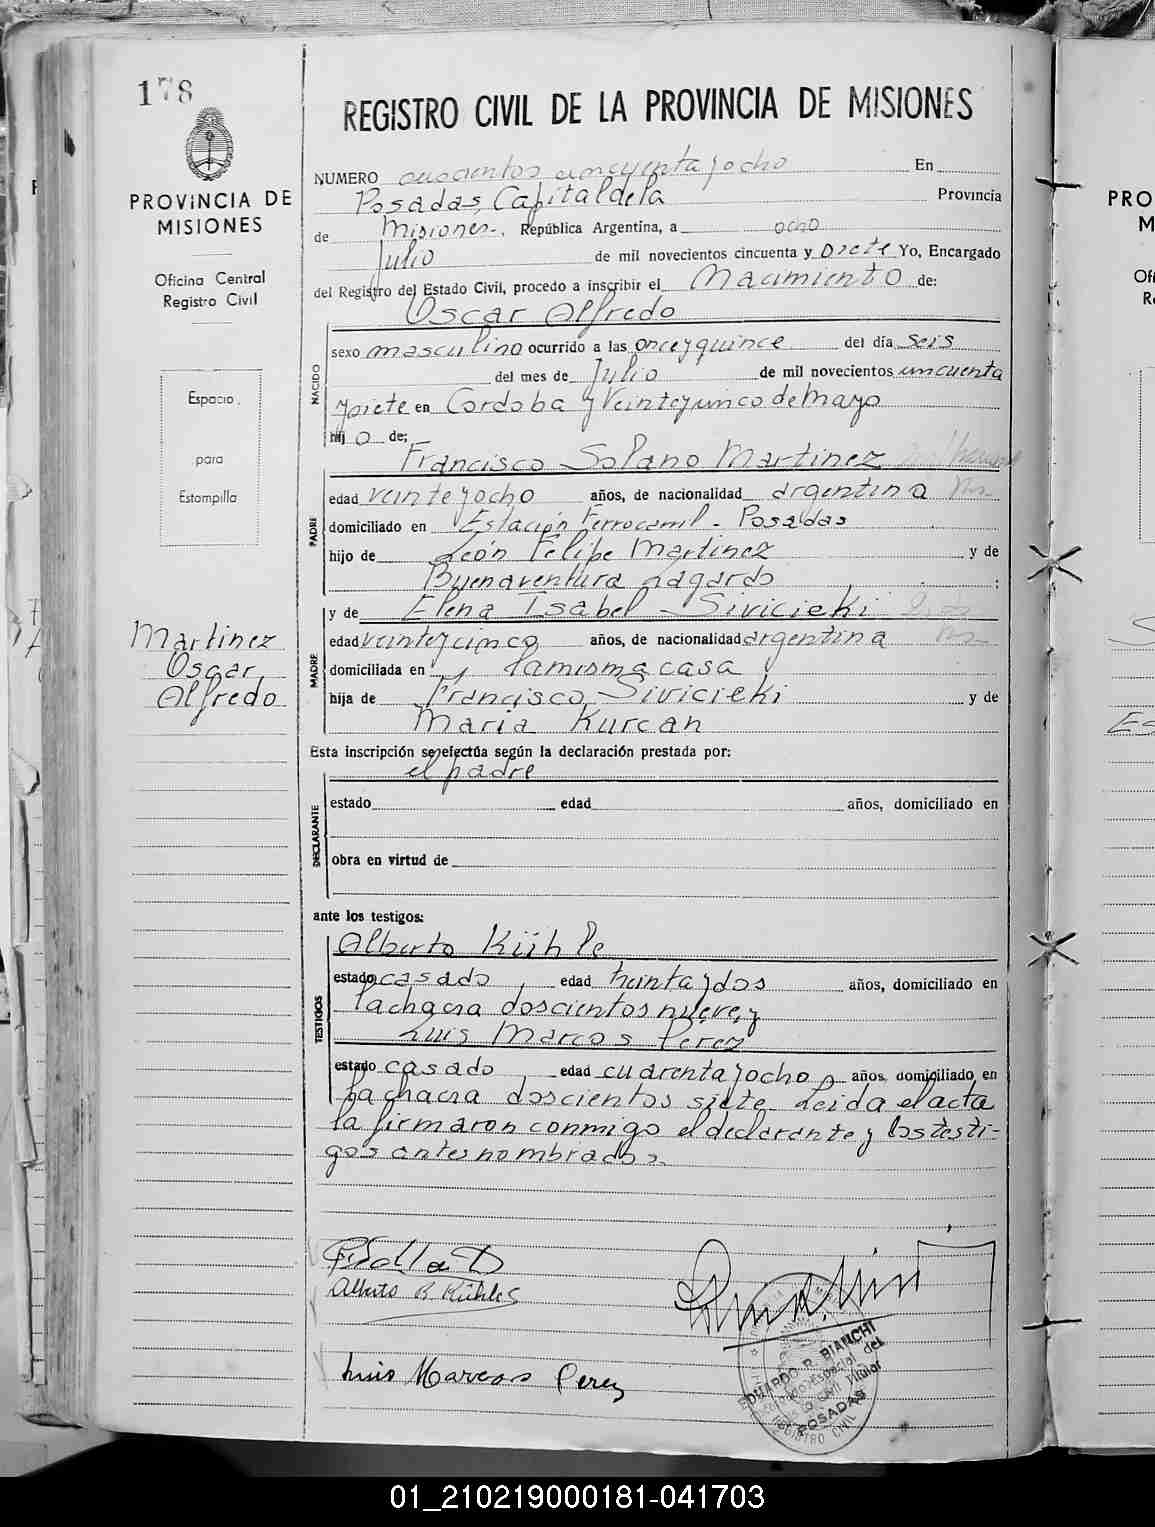 178
PROVINCIA DE
MISIONES
Oficina Central
Registro Civil
Espacio
para
Estampilla
Martinez
Oscar
Alfredo
REGISTRO CIVIL DE LA PROVINCIA DE MISIONES
NUMERO cuscientos cincuenta y ocho En
Posadas, Capital de la Provincia
de Misiones, República Argentina, a ocho
Julio de mil novecientos cincuenta y siete Yo, Encargado
del Registro del Estado Civil, procedo a inscribir el Nacimiento de:
Oscar Alfredo
NACIDO
sexo masculino ocurrido a las once y quince del día seis
del mes de Julio de mil novecientos cincuenta
y siete en Cordoba y Veinticinco de Mayo
hij o de:
Francisco Solano Martinez
PADRE
edad veinte y ocho años, de nacionalidad argentina
domiciliado en Estación Ferrocarril - Posadas
hijo de León Felipe Martinez y de
Buenaventura
y de Elena Isabel Sivicieki
MADRE
edad veinte y cinco años, de nacionalidad argentina
domiciliada en la misma casa
hija de Francisco Sivicieki y de
Maria Kurcan
Esta inscripción se efectúa según la declaración prestada por:
el padre
DECLARANTE
estado edad años, domiciliado en
obra en virtud de
ante los testigos:
TESTIGOS
Alberto Kühle
estado casado, edad treinta y dos años, domiciliado en
la chacra doscientos nueve, y
Luis Marcos Perez
estado casado, edad cuarenta y ocho años, domiciliado en
la chacra doscientos siete. Leida el acta
la firmaron conmigo el declarante y los testi-
gos antes nombrados.
Alberto R Kühle
Luis Marcos Perez
EDUARDO R. BIANCHI
POSADAS
REGISTRO CIVIL
01_210219000181-041703